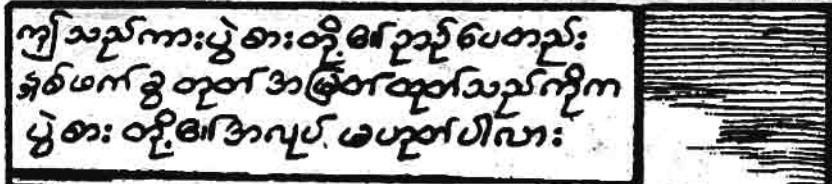 ဤသည်ကားပွဲစားတို့၏ဥာဉ်ပေတည်း
နှစ်ဖက်ခွတုတ်အမြတ်ထုတ်သည်ကိုက
ပွဲစားတို့၏အလုပ်မဟုတ်ပါလား